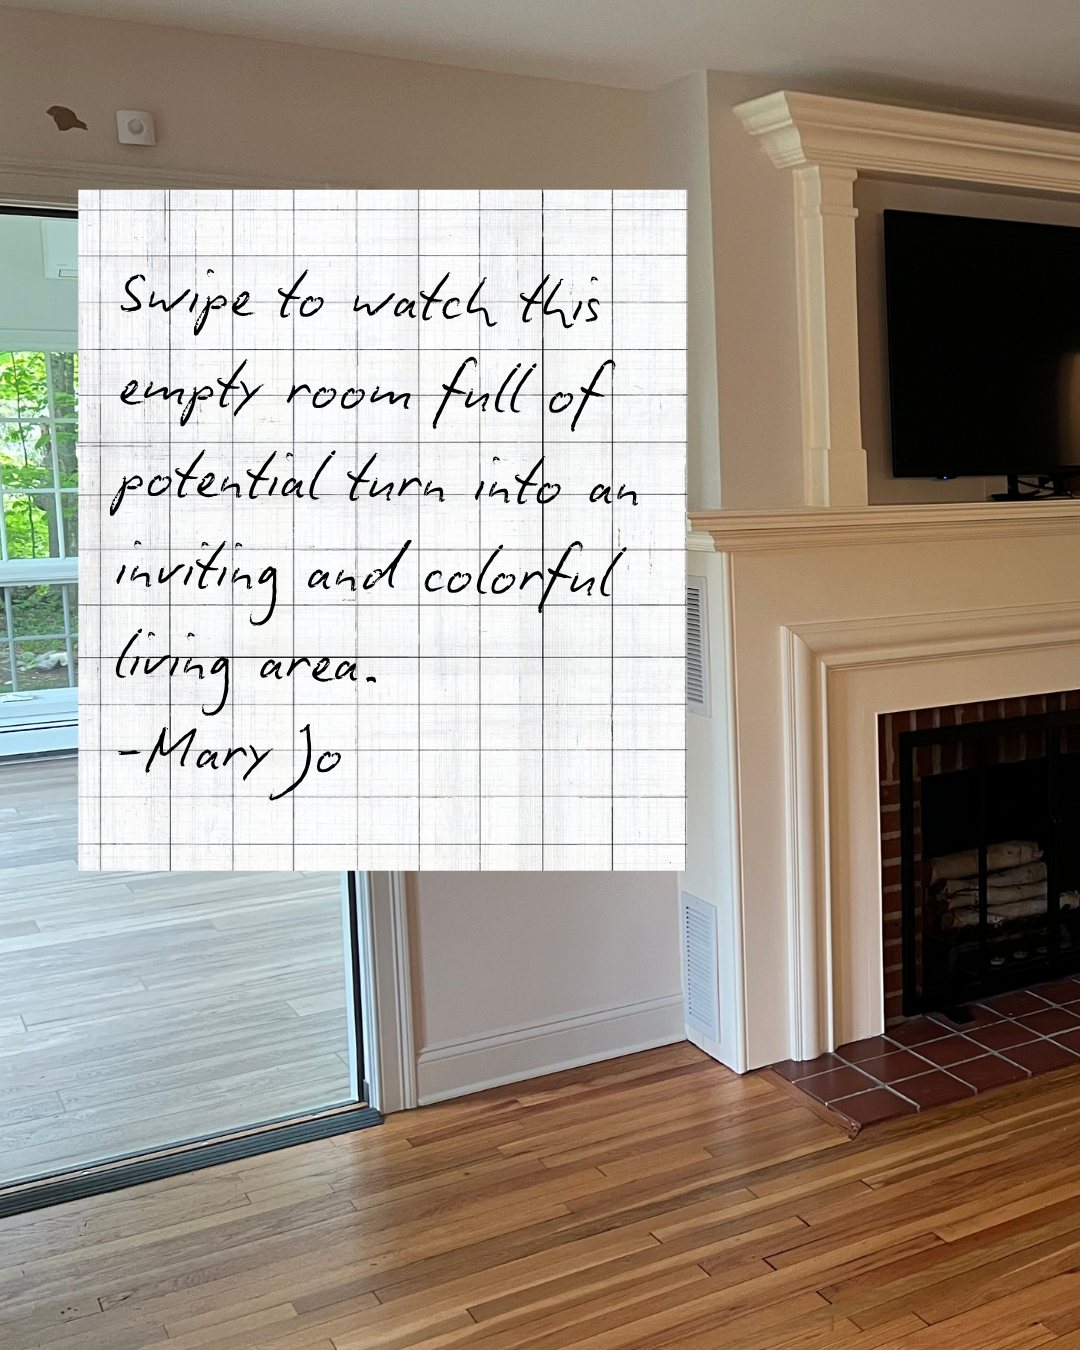 Swipe to watch this
empty room full of
potential turn into an
inviting and colorful
living area.
-Mary Jo